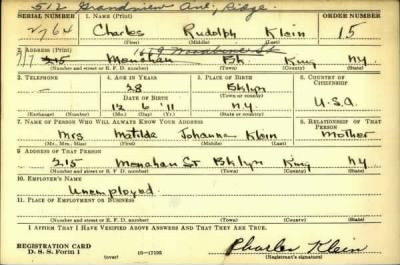 512 Grandview Ave, Ridge.
SERIAL NUMBER 1. NAME (Print) ORDER NUMBER
2764 Charles Rudolph Klein 15
(First) (Middle) (Last)
2. ADDRESS (Print)
215 Monahan Bk. King N.Y.
(Number and street or R. F. D. number) (Town) (County) (State)
3. TELEPHONE 4. AGE IN YEARS 5. PLACE OF BIRTH 6. COUNTRY OF CITIZENSHIP
28 Bklyn
(Town or county)
DATE OF BIRTH
12 6 '11 N.Y. U.S.A
(Exchange) (Number) (Mo.) (Day) (Yr.) (State or country)
7. NAME OF PERSON WHO WILL ALWAYS KNOW YOUR ADDRESS 8. RELATIONSHIP OF THAT PERSON
Mrs Matilda Johanna Klein Mother
(Mr., Mrs., Miss) (First) (Middle) (Last)
9. ADDRESS OF THAT PERSON
215 Monahan St Bklyn King NY
(Number and street or R. F. D. number) (Town) (County) (State)
10. EMPLOYER'S NAME
Unemployed.
11. PLACE OF EMPLOYMENT OR BUSINESS
(Number and street or R. F. D. number) (Town) (County) (State)
I AFFIRM THAT I HAVE VERIFIED ABOVE ANSWERS AND THAT THEY ARE TRUE.
REGISTRATION CARD
D. S. S. Form 1 16—17105 Charles Klein
(over) (Registrant's signature)